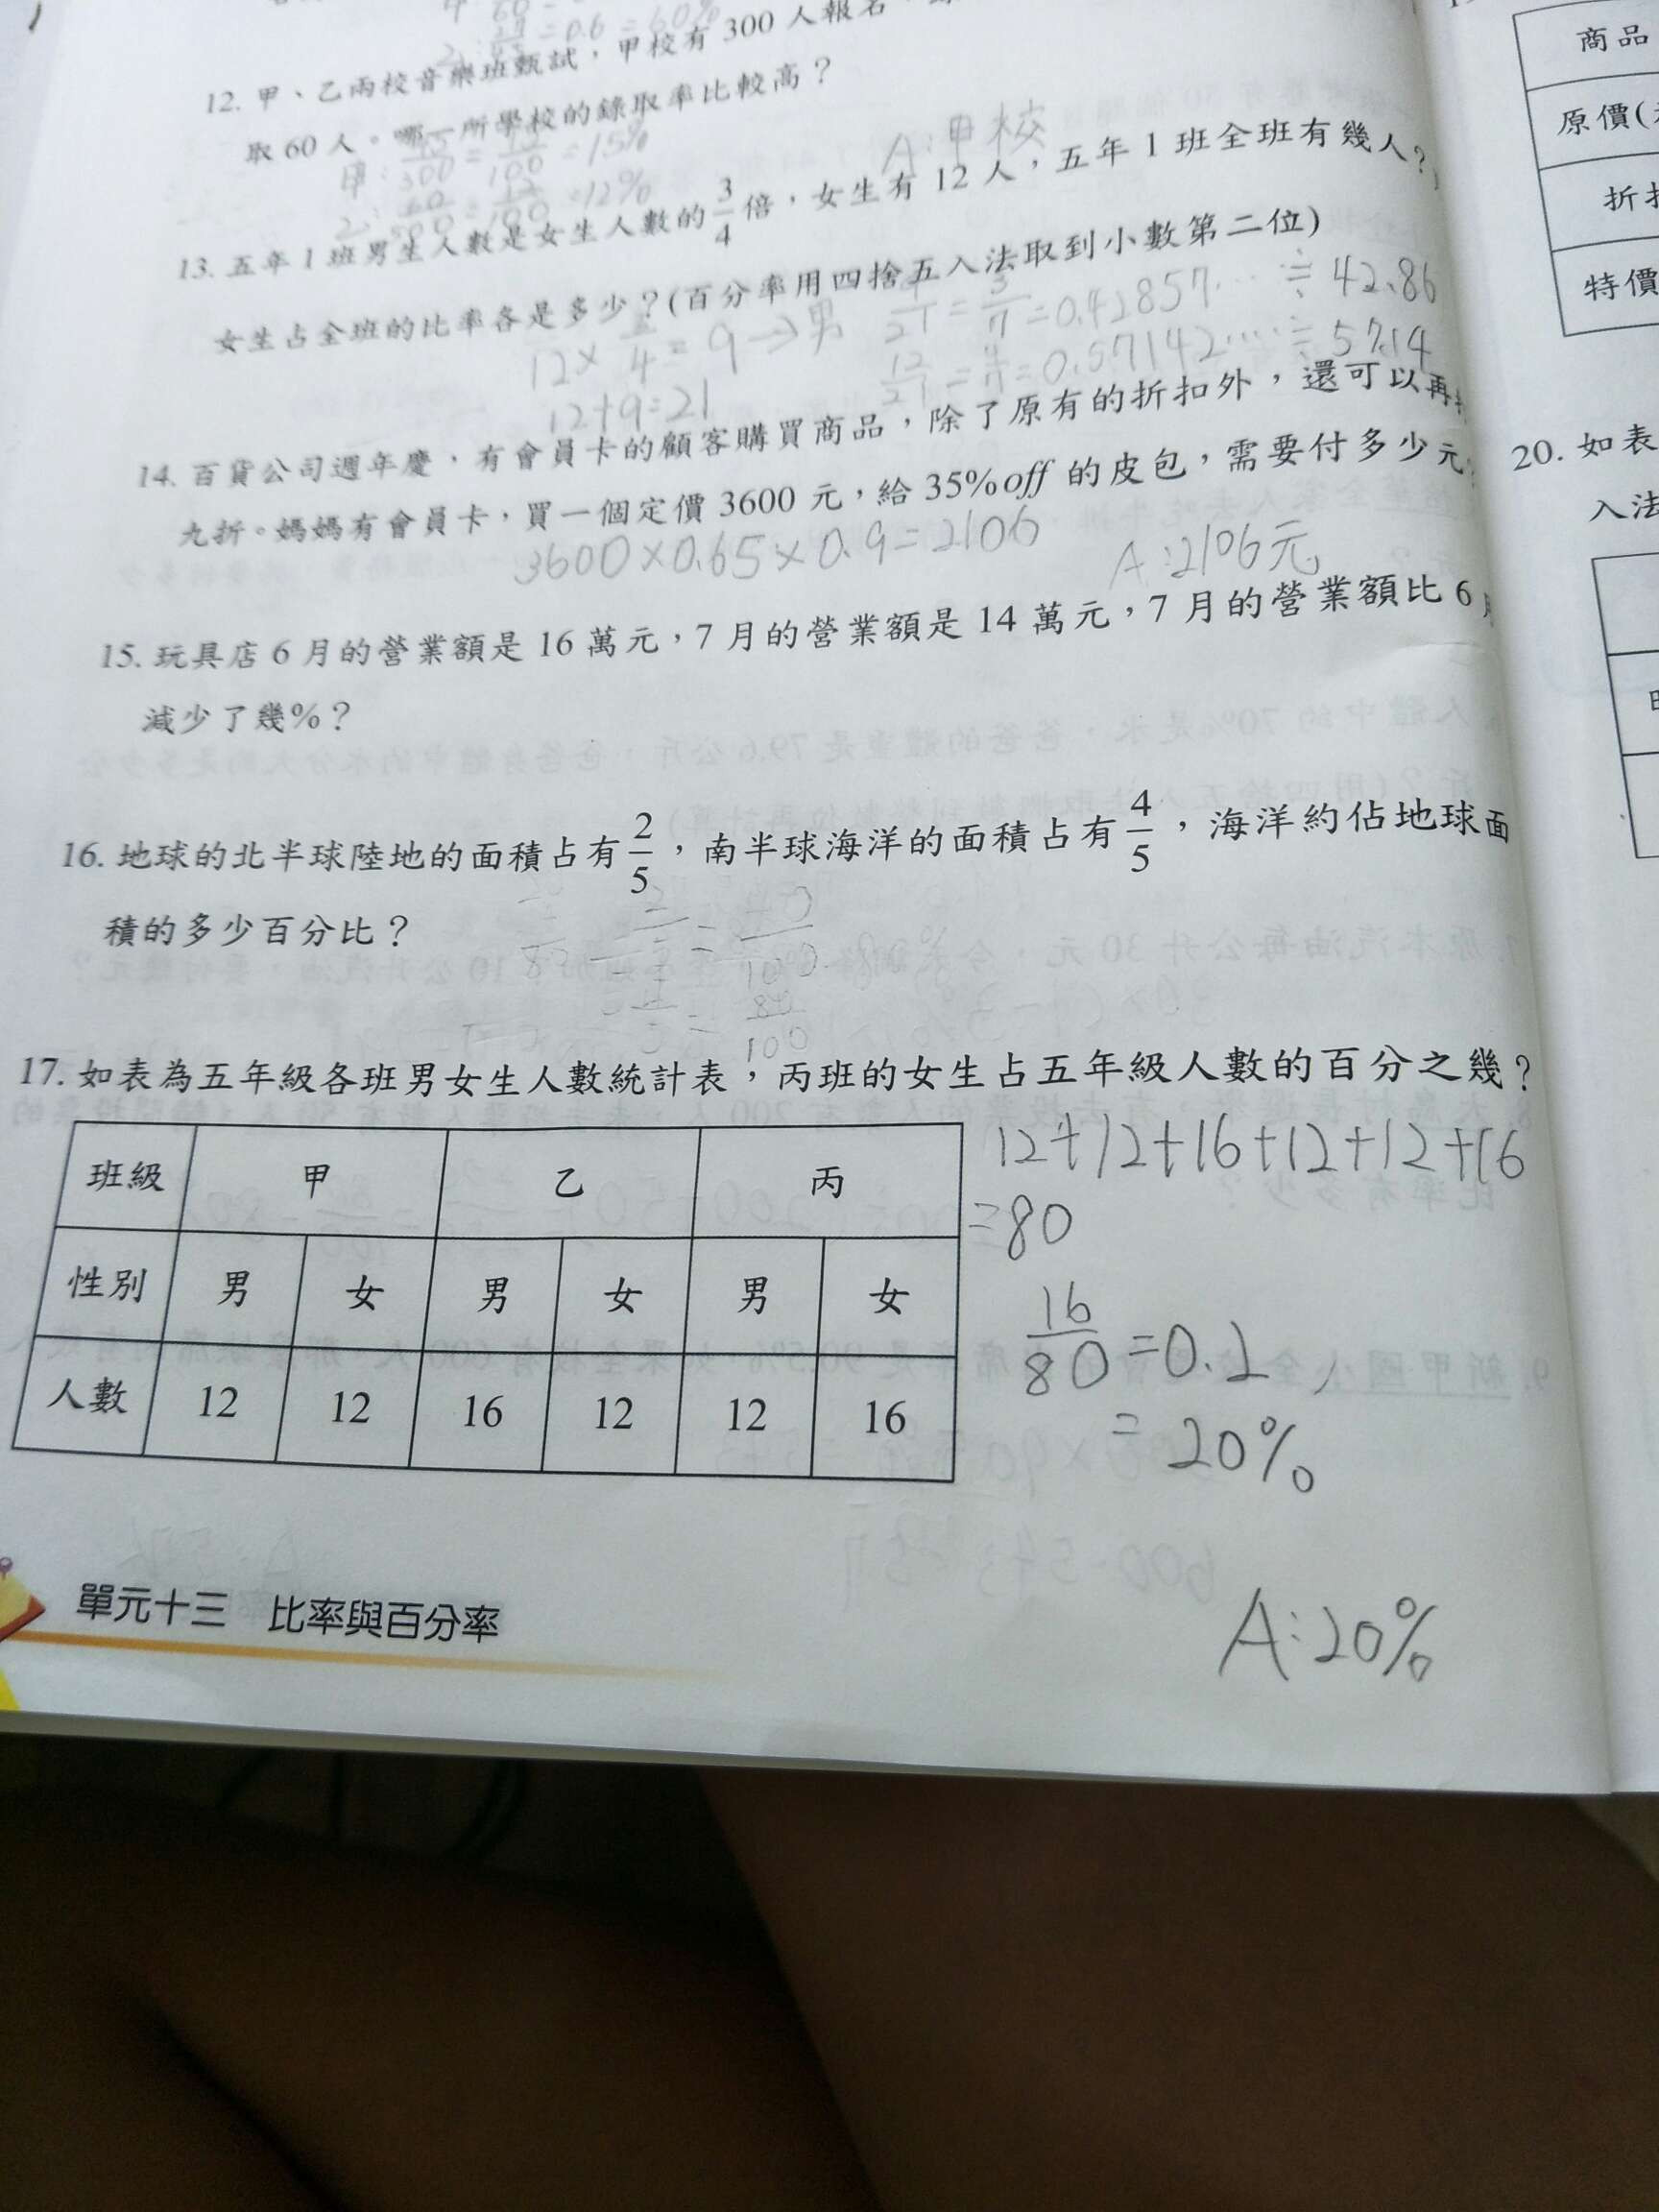 = 0.6 = 60%
12. 甲、乙兩校音樂班甄試，甲校有 300 人報名，
取 60 人。哪一所學校的錄取率比較高？
甲: 45/300 = 15/100 = 15%
乙: 60/500 = 12/100 = 12%
A:甲校
13. 五年 1 班男生人數是女生人數的 3/4 倍，女生有 12 人，五年 1 班全班有幾人？
女生占全班的比率各是多少？(百分率用四捨五入法取到小數第二位)
12 × 3/4 = 9 → 男
12+9=21
= 3/7 = 0.42857… ≒ 42.86
12/21 = 4/7 = 0.57142… ≒ 57.14
14. 百貨公司週年慶，有會員卡的顧客購買商品，除了原有的折扣外，還可以再
九折。媽媽有會員卡，買一個定價 3600 元，給 35%off 的皮包，需要付多少元
3600×0.65×0.9=2106
A:2106元
15. 玩具店 6 月的營業額是 16 萬元，7 月的營業額是 14 萬元，7 月的營業額比 6
減少了幾%？
16. 地球的北半球陸地的面積占有 2/5，南半球海洋的面積占有 4/5，海洋約佔地球面
積的多少百分比？
80/100
17. 如表為五年級各班男女生人數統計表，丙班的女生占五年級人數的百分之幾？
班級 甲 乙 丙
性別 男 女 男 女 男 女
人數 12 12 16 12 12 16
12+12+16+12+12+16
=80
16/80 =0.2
= 20%
A:20%
單元十三 比率與百分率
商品
原價(
特價
20. 如表
入法